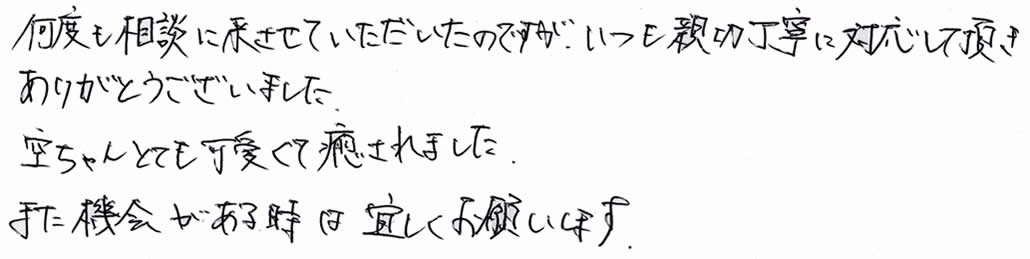 何度も相談に来させていただいたのですが、いつも親切丁寧に対応して頂き
ありがとうございました。
空ちゃんとても可愛くて癒されました。
また機会がある時は宜しくお願いします。